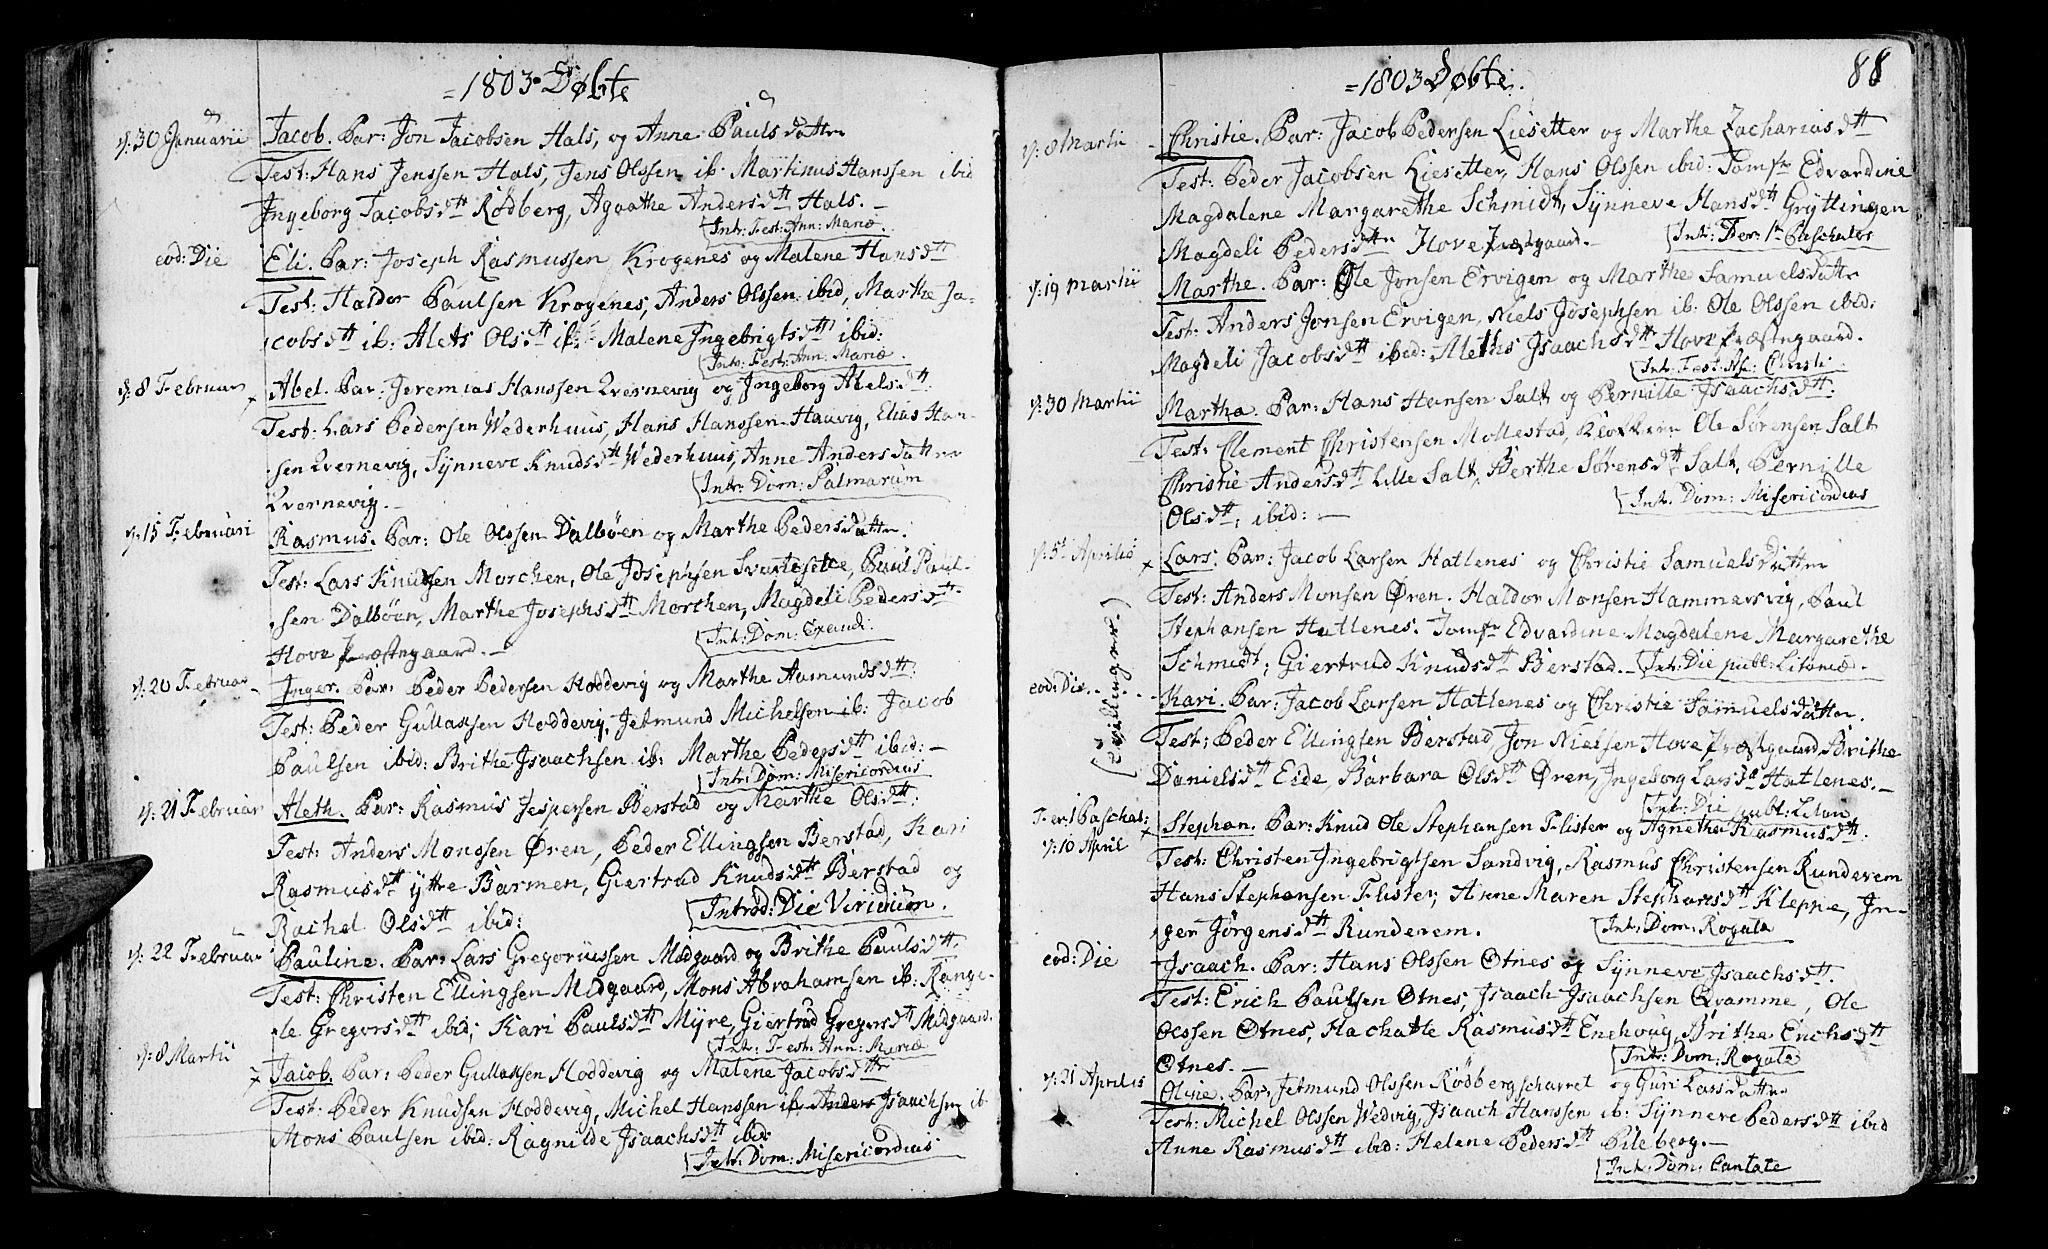 =1803. Døbte
d: 30 Januarii Jacob. Par: Jon Jacobsen Hals, og Anne Pauls datter
Test: Hans Jenssen Hals, Jens Olssen ib: Martinus Hanssen ibid
Ingeborg Jacobsdtt Rødberg, Agathe Andersdtt Hals.–
Intr: Fest: Ann: Mariæ.
eod: Die Eli. Par: Joseph Rasmussen Krogenes og Malene Hansdtt
Test: Haldor Paulsen Krogenes, Anders Olssen ibid, Marthe Ja-
cobsdtt ib: Alets Olsdtt ib: Malene Ingebrigtsdtt ibid:
Intr: Fest: Ann: Mariæ.
d: 8 Februar Abel. Par: Jeremias Hanssen Qvernevig og Ingeborg Abelsdtt:
Test: Lars Pedersen Wederhuus, Hans Hanssen Haavig, Elias Han-
sen Qvernevig, Synneve Knudsdtt Wederhuus, Anne Anders datter
Qvernevig.–
Intr: Dom: Palmarum
d: 15 Februari Rasmus. Par: Ole Olssen Dalbøen og Marthe Pedersdatter.
Test: Lars Knudsen Morchen, Ole Josephsen Svartesette, Paul Paul-
sen Dalbøen, Marthe Josephsdtt Morchen, Magdeli Pedersdtt
Hove Præstegaard.–
Intr: Dom: Exaudi.
d: 20 Februar Inger. Par: Peder Pedersen Hoddevig og Marthe Aamundsdtt:
Test: Peder Gullaksen Hoddevig, Jetmund Michelsen ib: Jacob
Paulsen ibid: Brithe Isaachsen ib: Marthe Pedersdtt ibid:–
Intr: Dom: Misericordias
d: 21 Februar Aleth. Par: Rasmus Jespersen Berstad og Marthe Olsdtt:
Test: Anders Monssen Øren, Peder Ellingsen Berstad, Kari
Rasmusdtt ytre Barmen, Giertrud Knudsdtt Berstad og
Rachel Olsdtt ibid:
Introd: Die Viridium.
d: 22 Februar Pauline. Par: Lars Gregoriussen Midgaard og Brithe Paulsdtt.
Test: Christen Ellingsen Midgaard, Mons Abrahamsen ib: Range-
le Gregorsdtt ibid; Kari Paulsdtt Myre, Giertrud Gregorsdtt Midgaard.
Intr: Fest: Ann: Mariæ
d: 8 Martii Jacob. Par: Peder Gullaksen Hoddevig og Malene Jacobsdtter
Test: Peder Knudsen Hoddevig, Michel Hanssen ib: Anders Isaachsen ib:
Mons Paulsen ibid: Ragnilde Isaachsdtt ibid:
Intr: Dom: Misericordias
=1803 Døbte. 88
d: 8 Martii Christie. Par: Jacob Pedersen Liesetter og Marthe Zachariasdtt
Test: Peder Jacobsen Liesetter, Hans Olssen ibid: Jomfr Edvardine
Magdalene Margarethe Schmidt, Synneve Hansdtt Gryttingen
Magdeli Pedersdtter Hove Præstgaard.–
Intr: Fer: 1. Paschatos
d: 19 Martii Marthe. Par: Ole Jonsen Ervigen og Marthe Samuelsdatter
Test: Anders Jonsen Ervigen, Niels Josephsen ib: Ole Olssen ibid:
Magdeli Jacobsdtt ibid: Aleths Isaachsdtt Hove Præstegaard.
Intr: Fest: Asc: Christi
d: 30 Martii Martha. Par: Hans Hansen Salt og Pernille Isaachsdtt.
Test: Clement Christensen Mollestad, Klokkere Ole Sørensen Salt
Christie Andersdtt Lille Salt, Berthe Sørensdtt Salt, Pernille
Olsdtt; ibid:–
Intr: Dom: Misericordias
d: 5t Aprilis Lars. Par: Jacob Larsen Hatlenes og Christie Samuelsdatter
Test: Anders Monsen Øren. Haldor Monsen Hammersvig, Paul
Stephansen Hatlenes. Jomfr Edvardine Magdalene Margarethe
Schmidt; Giertrud Knudsdtt Berstad.– Intr: Die publ: Litaniæ.
(Tvillinger.)
eod: Die. Kari. Par: Jacob Larsen Hatlenes og Christie Samuelsdatter.
Test: Peder Ellingsen Berstad, Jon Nielsen Hove Præstgaard, Brithe
Danielsdtt Eide, Barbara Olsdtt Øren, Ingeborg Larsda Hatlenes.–
Intr: Die publ: Litan
Fer: 1 Paschat: d: 10 April Stephan. Par: Knud Ole Stephansen Flister og Agnethe Rasmusdtt:
Test: Christen Ingebrigtsen Sandvig, Rasmus Christensen Runderem
Hans Stephansen Flister; Anne Maren Stephansdtt Kleppe, In-
ger Jørgensdtt Runderem.
Intr: Dom: Rogate
eod: Die Isaach. Par: Hans Olssen Otnes og Synneve Isaachsdtt.
Test: Erich Paulsen Otnes, Isaach Isaachsen Qvamme, Ole
Olssen Otnes, Rasmusdtt Brithe Erichsdtt
Otnes.–
Intr: Dom: Rogate
d: 21 Aprilis Oline. Par: Jetmund Olssen Rødbergscharret og Guri Larsdatter
Test: Michel Olssen Wedvig, Isaach Hanssen ib: Synneve Pedersdtt ibid
Anne Rasmusdtt ibid: Helene Pedersdtt Pileberg.–
Intr: Dom: Cantate